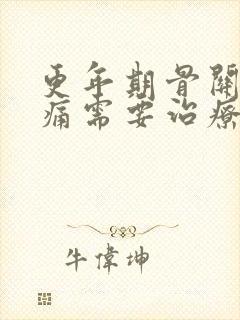 更年期骨關
痛需要治療
牛偉坤